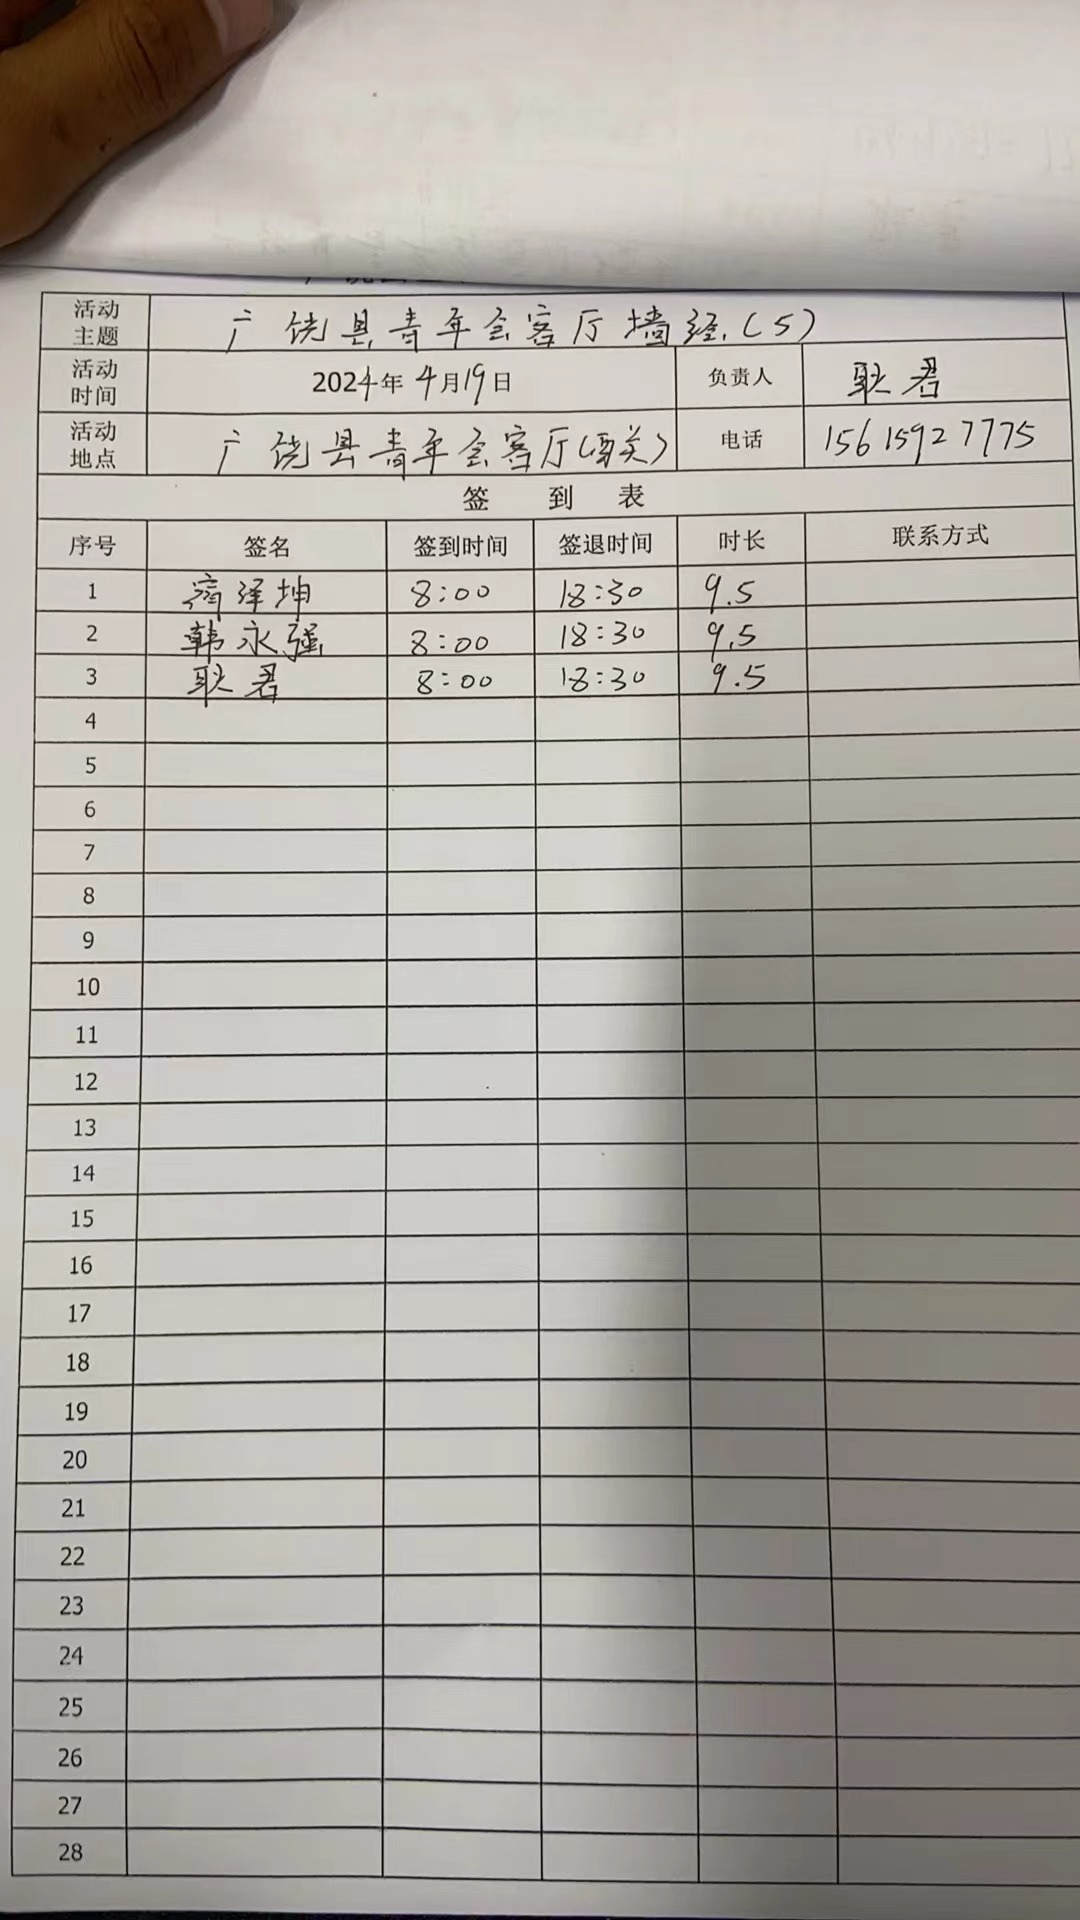 活动主题 广饶县青年会客厅墙绘(5)
活动时间 2024年4月19日 负责人 耿君
活动地点 广饶县青年会客厅(西关) 电话 15615927775
签 到 表
序号 签名 签到时间 签退时间 时长 联系方式
1 泽坤 8:00 18:30 9.5
2 韩永强 8:00 18:30 9.5
3 耿君 8:00 18:30 9.5
4
5
6
7
8
9
10
11
12
13
14
15
16
17
18
19
20
21
22
23
24
25
26
27
28